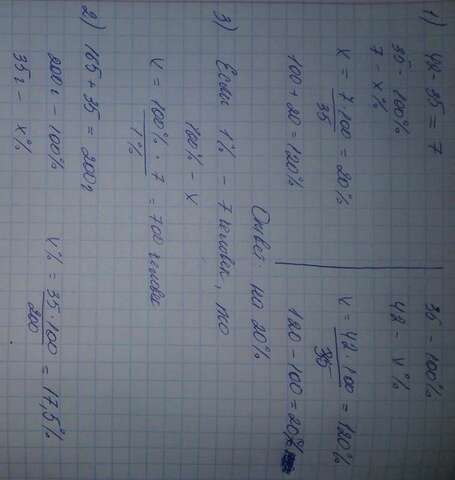 1) 42 - 35 = 7
35 - 100%
7 - x%
x = 7 · 100 / 35 = 20%
100 + 20 = 120%
35 - 100%
42 - x%
x = 42 · 100 / 35 = 120%
120 - 100 = 20%
Ответ: на 20%
3) Если 1% - 7 человек, то
100% - x
x = 100% · 7 / 1% = 700 человек
2) 165 + 35 = 200г
200г - 100%
35г - x%
x% = 35 · 100 / 200 = 17,5%